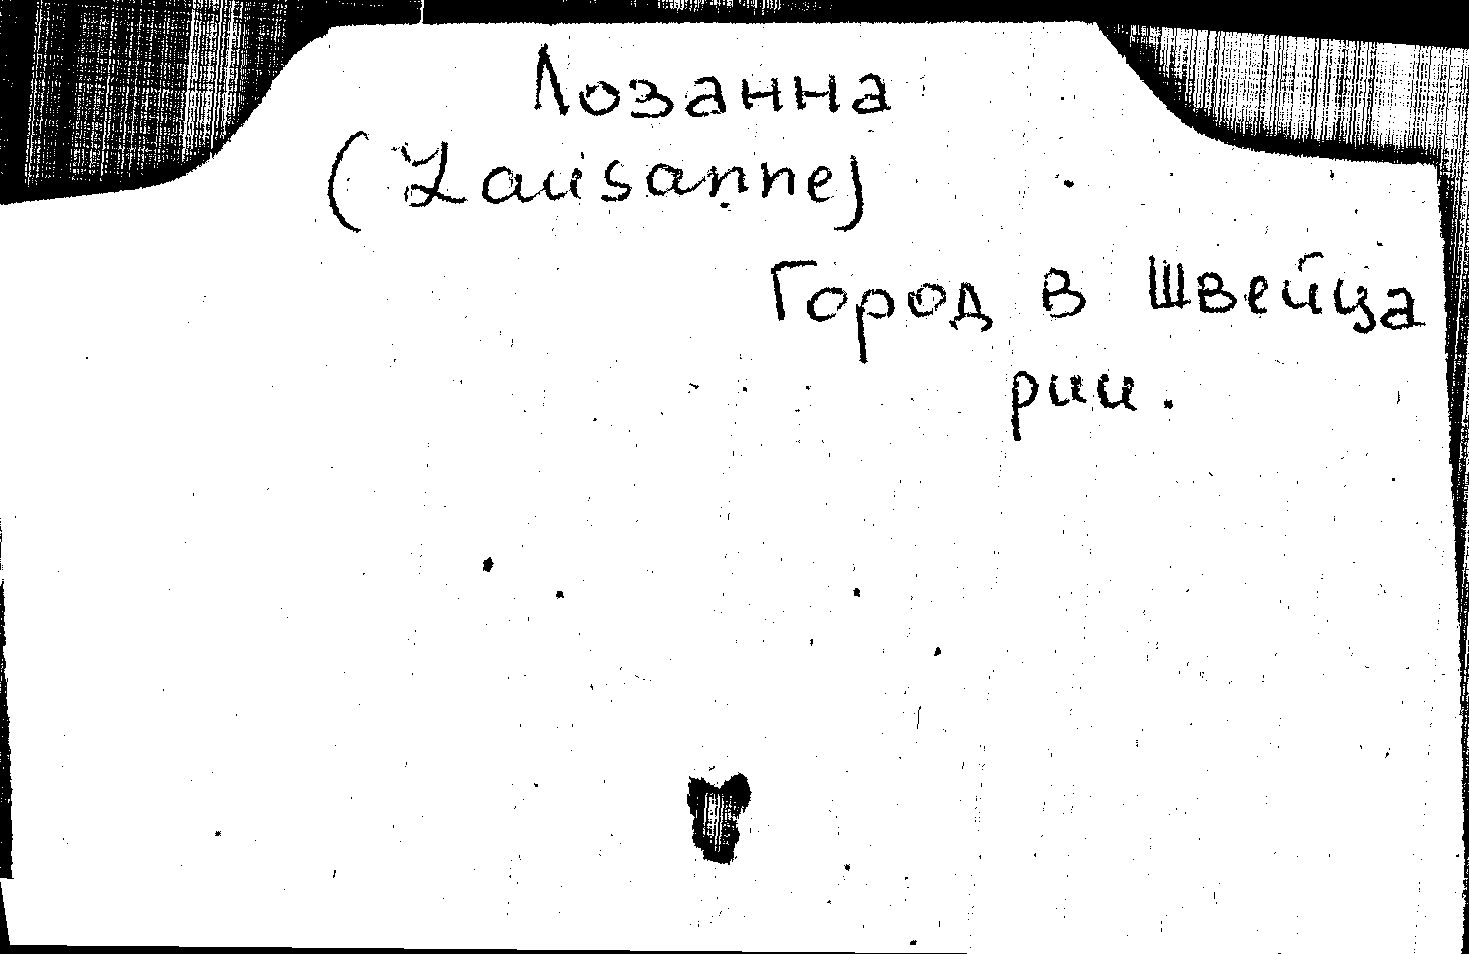 Лозанна
(Lausanne)
Город в Швейца
рии.